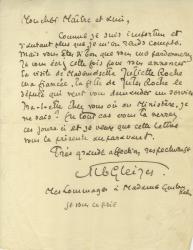 Mon cher Maître et ami,
Comme je suis importun et
d'autant plus que je m'en rends compte.
Mais vous êtes si bon que vous me pardonnerez.
Je vous écris cette fois pour vous annoncer
la visite de Mademoiselle Juliette Roche
ma fiancée, la fille de Jules Roche le
député qui veut vous demander un service
Ira-t-elle chez vous ou au Ministère, je
ne sais? En tout cas vous la verrez
ces jours-ci et je veux que cette lettre
vous la présente auparavant.
Très grande affection respectueuse
Alb Gleizes
Mes hommages à Madame Gustave Kahn
je vous en prie